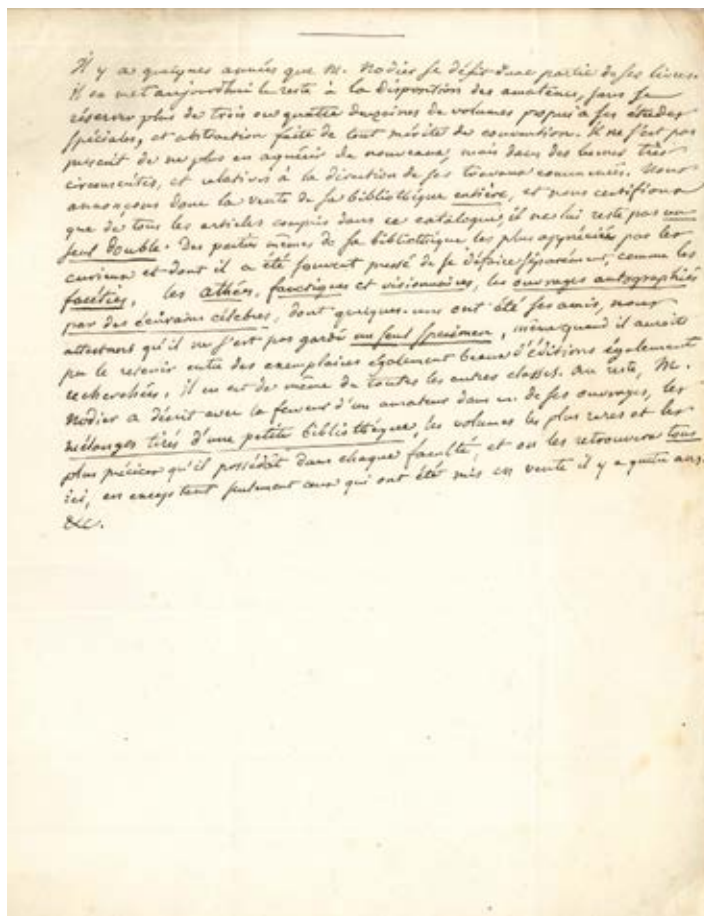 Il y a quelques années que M. Nodier se défit d'une partie de ses livres.
il en met aujourd'hui le reste à la disposition des amateurs, sans se
réserver plus de trois ou quatre douzaines de volumes propres à ses études
spéciales, et abstraction faite de tout mérite de convention. Il ne s'est pas
prescrit de ne plus en aquérir de nouveaux, mais dans des bornes très
circonscrites, et relatives à la direction de ses travaux commencés. Nous
annonçons donc la vente de sa bibliothèque entière, et nous certifions
que de tous les articles compris dans ce catalogue, il ne lui reste pas un
seul double. Des parties mêmes de sa bibliothèque les plus appréciées par les
curieux et dont il a été souvent pressé de se défaire séparément, comme les
facéties, les athées, fanatiques et visionnaires, les ouvrages autographiés
par des écrivains célèbres, dont quelques-uns ont été ses amis, nous
attestons qu'il ne s'est pas gardé un seul specimen, même quand il auroit
pu le retenir entre des exemplaires également beaux d'éditions également
recherchées. il en est de même de toutes les autres classes. Au reste, M.
Nodier a décrit avec la ferveur d'un amateur dans un de ses ouvrages, les
mélanges tirés d'une petite bibliothèque, les volumes les plus rares et les
plus précieux qu'il possédât dans chaque faculté, et on les retrouvera tous
ici, en exceptant seulement ceux qui ont été mis en vente il y a quatre ans.
&c.